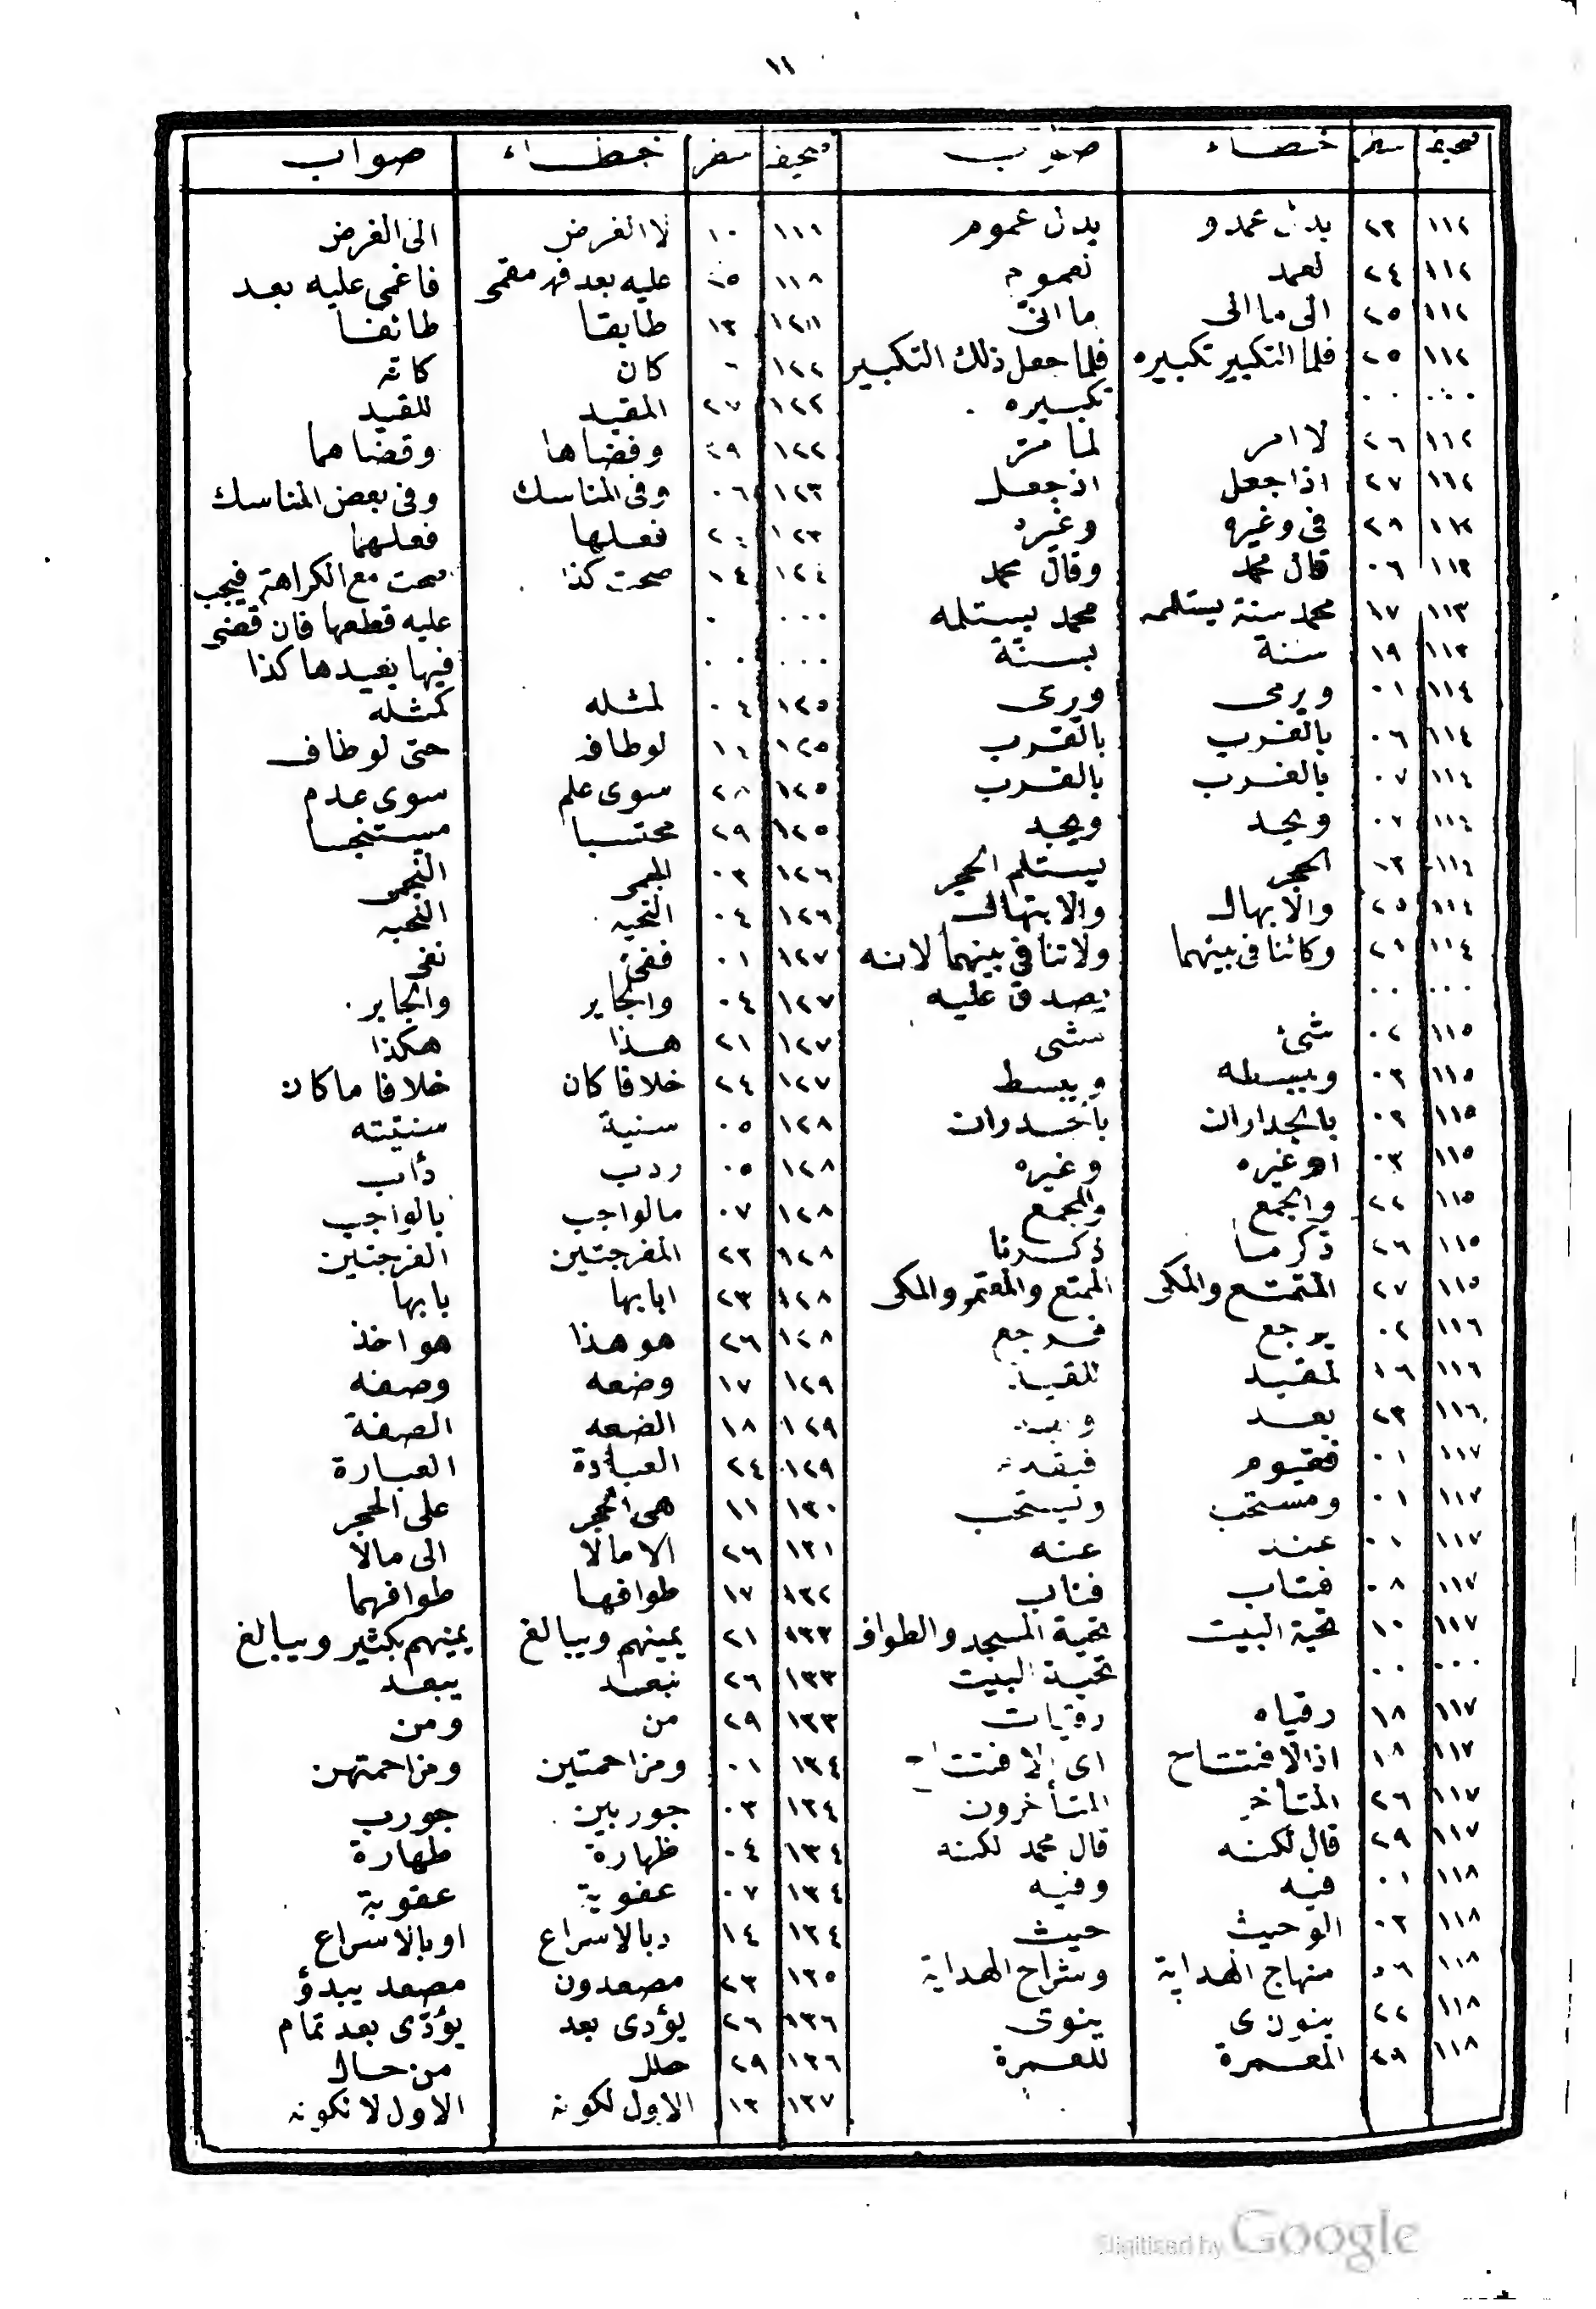 ١١
صحيفه سطر خطاء صواب
١١٢ ٢٣ بدن عمدو بدن عموم
١١٢ ٢٤ لعمد نعموم
١١٢ ٢٥ الى ما الى ما الى
١١٢ ٢٥ فلما التكبير تكبيره فلما جعل ذلك التكبير
تكبيره
١١٢ ٢٦ لا امر لما مر
١١٢ ٢٧ اذا جعل اذ جعل
١١٢ ٢٨ فى وغيره وغيره
١١٣ ٠٦ قال محمد وقال محمد
١١٣ ١٧ محمد سنة يستلمه محمد يستلمه
١١٣ ١٩ سنة بسنة
١١٤ ٠١ ويرمى ورمى
١١٤ ٠٦ بالغرب بالقرب
١١٤ ٠٧ بالغرب بالقرب
١١٤ ٠٧ ويحد ويجد
١١٤ ١٣ الحجر يستلم الحجر
١١٤ ٢٥ والابهال والابتهال
١١٤ ٢٩ وكائنا فى بينهما ولا تنافى بينهما لانه
يصدق عليه
١١٥ ٠٢ شئ شى
١١٥ ٠٣ ويبسطه ويبسط
١١٥ ٠٣ بالجداران باحدران
١١٥ ٠٣ او غيره وغيره
١١٥ ٢٢ والجمع والمجمع
١١٥ ٢٦ ذكر ما ذكرنا
١١٥ ٢٧ المتمتع والمكى المتمتع والمعتمر والمكى
١١٦ ٠٢ يرجع فيرجع
١١٦ ١٦ لمقيد للقيد
١١٦ ٢٣ بعد وبعد
١١٧ ٠١ فقيوم فيقدم
١١٧ ٠١ ومستحب ويستحب
١١٧ ٠١ عند عنه
١١٧ ٠٨ فتاب فناب
١١٧ ١٠ تحية البيت تحية المسجد والطواف
تحية البيت
١١٧ ١٨ رقياه رقيات
١١٧ ١٨ اذالافتتاح اى الافتتاح
١١٧ ٢٦ المتأخر المتأخرون
١١٧ ٢٩ قال لكنه قال محمد لكنه
١١٨ ٠١ فيه وفيه
١١٨ ٠٣ الوحيث حيث
١١٨ ٠٦ منهاج الهداية وشراح الهداية
١١٨ ٢٢ ينون ى ينوى
١١٨ ٢٩ المعمرة للعمرة
صحيفه سطر خطاء صواب
١١٨ ١٠ لا الفرض الى الفرض
١١٨ ٢٥ عليه بعد فهر مقمى فاغمى عليه بعد
١٢١ ١٣ طابقا طائفا
١٢٢ ٦ كان كانه
١٢٢ ٢٧ المقيد للقيد
١٢٢ ٢٩ وفضاها وقضاهما
١٢٣ ٠٦ وفى المناسك وفى بعض المناسك
١٢٣ ٢٠ فعلها فعلهما
١٢٤ ١٤ صحت كذا صحت مع الكراهة فيجب
عليه قطعها فان قضى
فيها يعيدها كذا
١٢٥ ٠٤ لمثله كمثله
١٢٥ ١٤ لوطاف حتى لوطاف
١٢٥ ٢٨ سوى علم سوى عدم
١٢٥ ٢٩ محتسبا مستنجسا
١٢٦ ٠٣
١٢٦ ٠٤ التحيه النخبه
١٢٧ ٠١ ففى نفى
١٢٧ ٠٤ والجاير والجابر
١٢٧ ٢١ هذا هكذا
١٢٧ ٢٤ خلافا كان خلافا ما كان
١٢٨ ٠٥ سنية سنيته
١٢٨ ٠٥ ردب دأب
١٢٨ ٠٧ مالواجب بالواجب
١٢٨ ٢٣ المفرجتين الفرجتين
١٢٨ ٢٣ ابابها بابها
١٢٨ ٢٦ هو هذا هو اخذ
١٢٩ ١٧ وضعه وصفه
١٢٩ ١٨ الضعه الصفة
١٢٩ ٢٤ العبادة العبارة
١٣٠ ١١ هى الحجر على الحجر
١٣١ ٢٦ الا مالا الى مالا
١٣٢ ١٧ طوافها طوافهما
١٣٣ ٢١ يمينهم ويبالغ يمينهم بكثير ويبالغ
١٣٣ ٢٦ نبعد يبعد
١٣٣ ٢٩ من ومن
١٣٤ ٠١ ومزاحمتين ومزاحمتهن
١٣٤ ٠٣ جوربين جورب
١٣٤ ٠٤ ظهارة طهارة
١٣٤ ٠٧ عفوية عقوبة
١٣٤ ١٤ دبالاسراع اوبالاسراع
١٣٥ ٢٣ مصعدون مصعد يبدؤ
١٣٦ ٢٦ يؤدى بعد يؤدى بعد تمام
١٣٦ ٢٩ حلل من حال
١٣٧ ١٣ الاول لكونه الاول لا نكونه
Digitized by Google